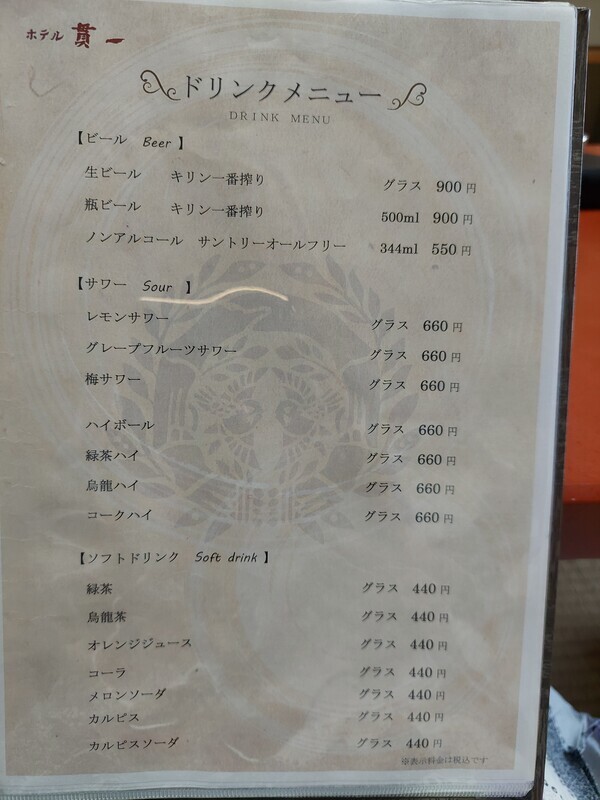 ホテル 貫一
ドリンクメニュー
DRINK MENU
【ビール Beer】
生ビール キリン一番搾り グラス 900円
瓶ビール キリン一番搾り 500ml 900円
ノンアルコール サントリーオールフリー 344ml 550円
【サワー Sour 】
レモンサワー グラス 660円
グレープフルーツサワー グラス 660円
梅サワー グラス 660円
ハイボール グラス 660円
緑茶ハイ グラス 660円
烏龍ハイ グラス 660円
コークハイ グラス 660円
【ソフトドリンク Soft drink】
緑茶 グラス 440円
烏龍茶 グラス 440円
オレンジジュース グラス 440円
コーラ グラス 440円
メロンソーダ グラス 440円
カルピス グラス 440円
カルピスソーダ グラス 440円
※表示料金は税込です